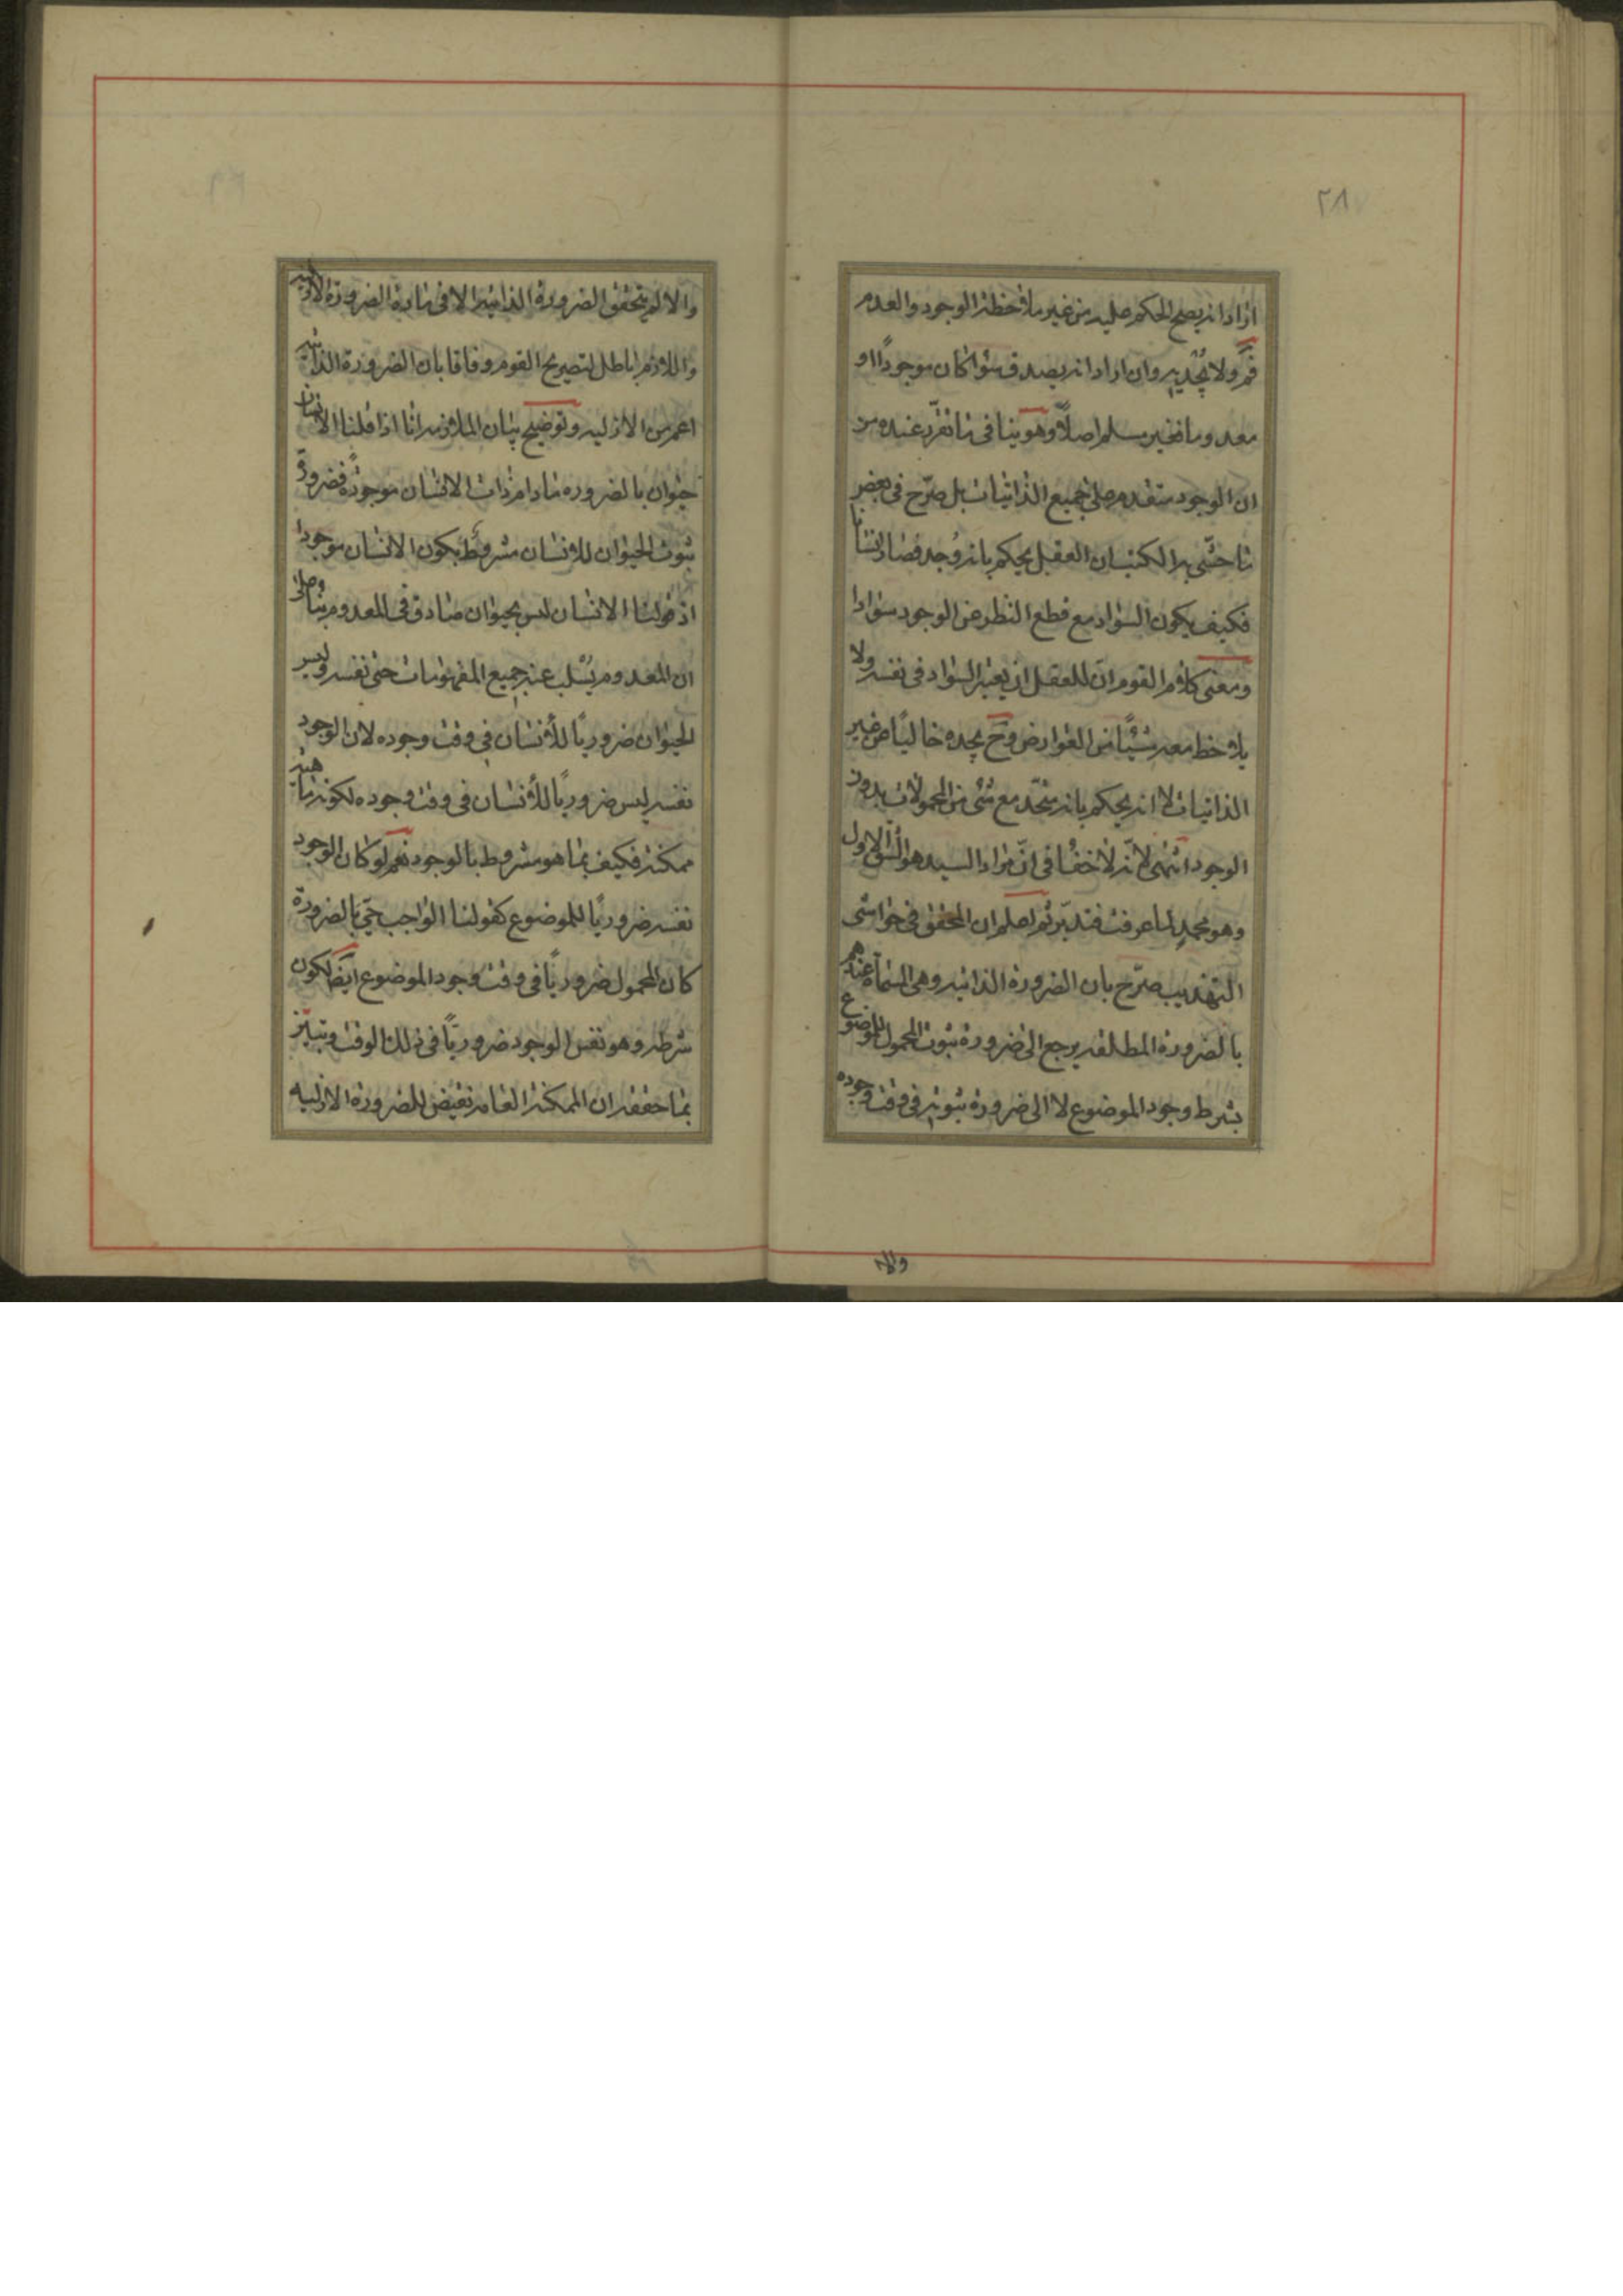 ٢٨
اراد انه يصح الحكم عليه من غير ملاحظة الوجود والعدم
فمّ ولا يجديه وان اراد انه يصدق سواء كان موجودًا او
معدوما فغير مسلم اصلاً وهو ينافى ما تقرّر عنده من
ان الوجود متقدم على جميع الذاتيات بل صرّح فى بعض
بان العقل يحكم بانه وُجد فصار انسانا
فكيف يكون السواد مع قطع النظر عن الوجود سوادا
ومعنى كلام القوم انّ للعقل ان يعتبر السواد فى نفسه ولا
يلاحظ معه شيئًا من العوارض وح يجده خاليًا عن غير
الذاتيات لا انه يحكم بانه متحد مع شئ من المحمولات بدون
الوجود انتهى لانّه لا خفاء فى انّ مراد السيد هو الشق الاول
وهو مجدٍ لما عرفت فتدبّر ثم اعلم ان المحقق فى حواشى
التهذيب صرّح بان الضرورة الذاتيه وهى المسماة عندهم
بالضرورة المطلقه يرجع الى ضرورة ثبوت المحمول للموضوع
بشرط وجود الموضوع لا الى ضرورة ثبوته فى وقت وجوده
والا
والا لم يتحقق الضرورة الذاتية الا فى مادة الضرورة الازلية
واللازم باطل لتصريح القوم وفاقا بان الضرورة الذاتيه
اعم من الازليه وتوضيح بيان الملازمه انا اذا قلنا الانسان
حيوان بالضروره مادام ذات الانسان موجودةً فضرورة
ثبوت الحيوان للانسان مشروط بكون الانسان موجودا
اذ قولنا الانسان ليس بحيوان صادق فى المعدوم بناء على
ان المعدوم يسلب عنه جميع المفهومات حتى نفسه وليس
الحيوان ضروريًا للأنسان فى وقت وجوده لان الوجود
نفسه ليس ضروريًا للأنسان فى وقت وجوده لكونه ماهية
ممكنة فكيف بما هو مشروط بالوجود نعم لو كان الوجود
نفسه ضروريًا للموضوع كقولنا الواجب حىّ بالضرورة
كان المحمول ضروريًا فى وقت وجود الموضوع ايضًا لكون
شرطه وهو نفس الوجود ضروريًا فى ذلك الوقت
بما حققه ان الممكنة العامه نقيض للضرورة الازليه